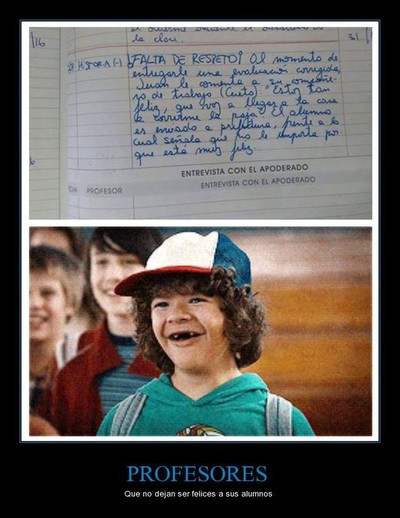 la clase.
/16
31
HISTORIA (-) ¡FALTA DE RESPETO! Al momento de
entregarle una evaluación corregida,
Juan le comenta a su compañe-
ro de trabajo (Cueto) "Estoy tan
feliz, que voy a llegar a la casa
a correrme la paja". El alumno
es enviado a prefectura, frente a lo
cual señala que no le importa por-
que está muy feliz.
ENTREVISTA CON EL APODERADO
PROFESOR
ENTREVISTA CON EL APODERADO
PROFESORES
Que no dejan ser felices a sus alumnos